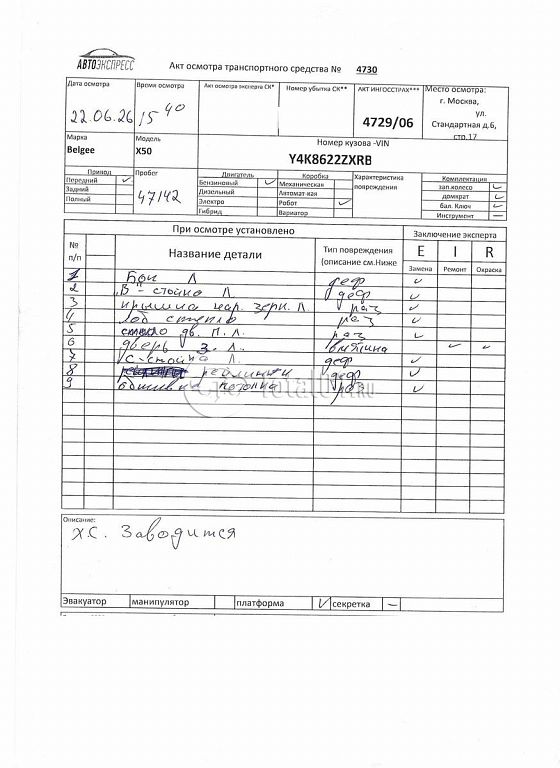 АВТОЭКСПРЕСС
Акт осмотра транспортного средства № 4730
Дата осмотра
22.06.26
Время осмотра
15 40
Акт осмотра эксперта СК*
Номер убытка СК**
АКТ ИНГОССТРАХ***
4729/06
Место осмотра:
г. Москва,
ул.
Стандартная д.6,
стр.17
Марка
Belgee
Модель
X50
Номер кузова -VIN
Y4K8622ZXRB
Привод
Передний ✓
Задний
Полный
Пробег
47142
Двигатель
Бензиновый ✓
Дизельный
Электро
Гибрид
Коробка
Механическая
Автомат-кая
Робот ✓
Вариатор
Характеристика
повреждения
Комплектация
зап.колесо ✓
домкрат ✓
бал. Ключ ✓
Инструмент –
При осмотре установлено
Заключение эксперта
№
п/п
Название детали
Тип повреждения
(описание см.Ниже
E I R
Замена Ремонт Окраска
1 Бок Л деф ✓
2 "В"-стойка Л. деф ✓
3 крышка нар. зерк. Л. раз ✓
4 лоб стекло раз ✓
5 стекло дв. П. Л. раз ✓
6 дверь З. Л. вмятина ✓ ✓
7 С-стойка Л. деф ✓
8 рейлинги деф ✓
9 обшивка потолка раз ✓
Total01.RU
Описание:
х.С. Заводится
Эвакуатор манипулятор платформа ✓ секретка –